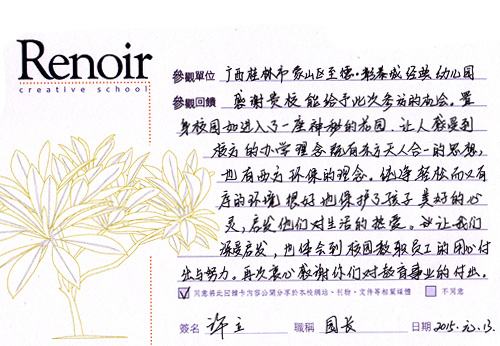 Renoir
creative school
參觀單位 广西桂林市象山区至德·彩泰成经典幼儿园
參觀回饋 感谢贵校能给予此次参访的机会。置
身校园如进入了一座神秘的花园，让人感受到
校方的办学理念既有东方天人合一的思想，
也有西方环保的理念。创造轻松而又有
序的环境很好地保护了孩子美好的心
灵，启发他们对生活的热爱。这让我们
深受启发，也体会到校园教职员工的用心付
出与努力。再次衷心感谢你们对教育事业的付出。
同意將此回饋卡內容公開分享於本校網站、刊物、文件等相關媒體 不同意
簽名 许立 職稱 园长 日期 2015.元.13.